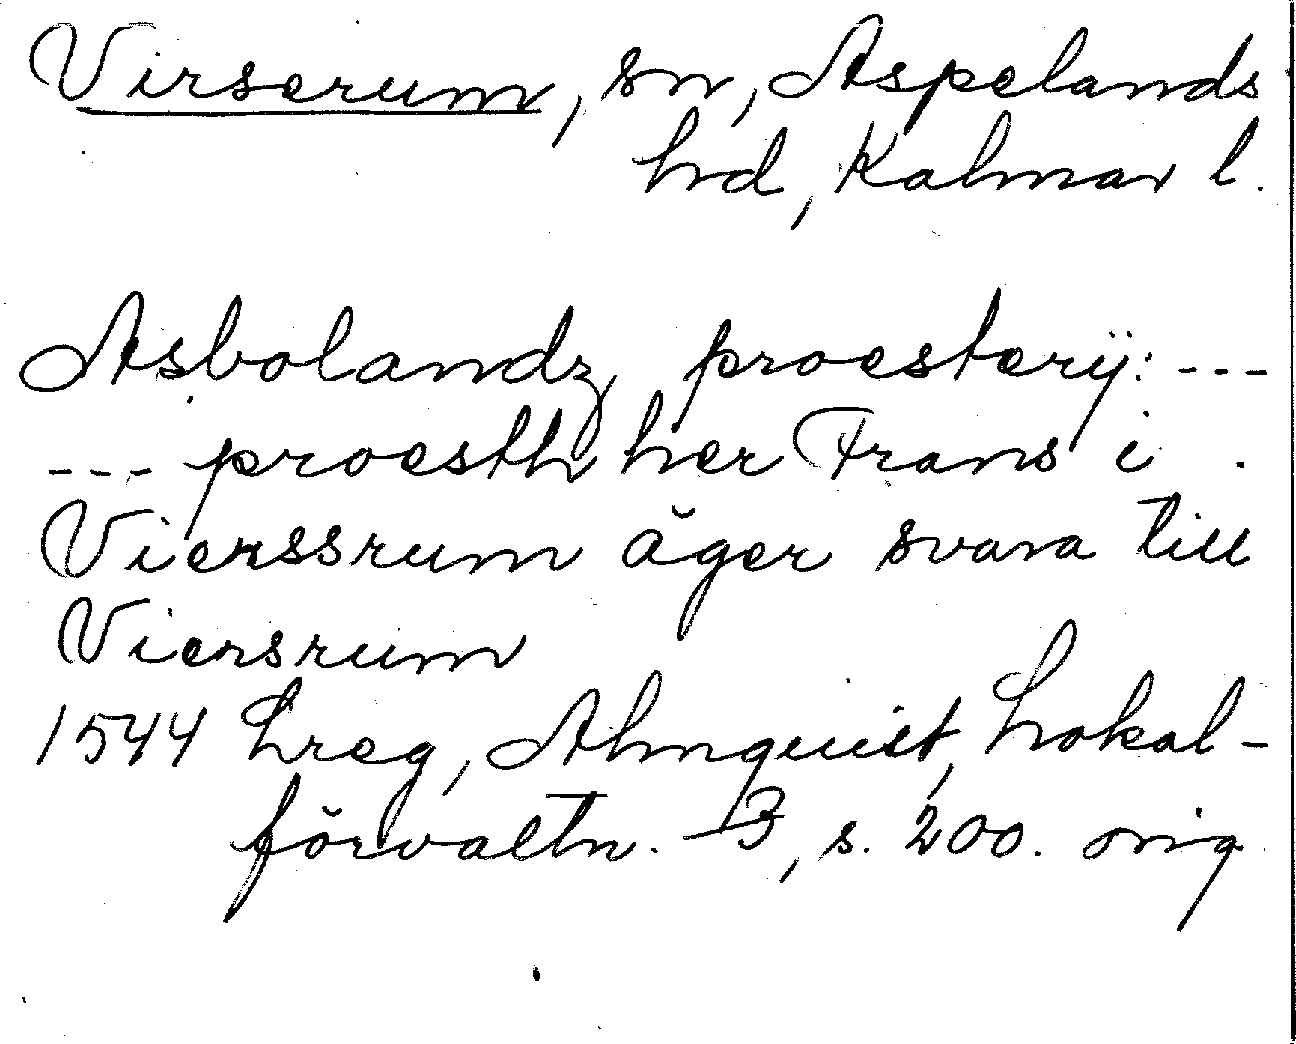 Virserum, sn, Aspelands
hd, Kalmar l.
Asbolandz proestery̎: ---
--- proesth her Frans i
Vierssrum äger svara till
Viersrum
1544 Lreg, Almquist, Lokal-
förvaltn. 3, s. 200. orig